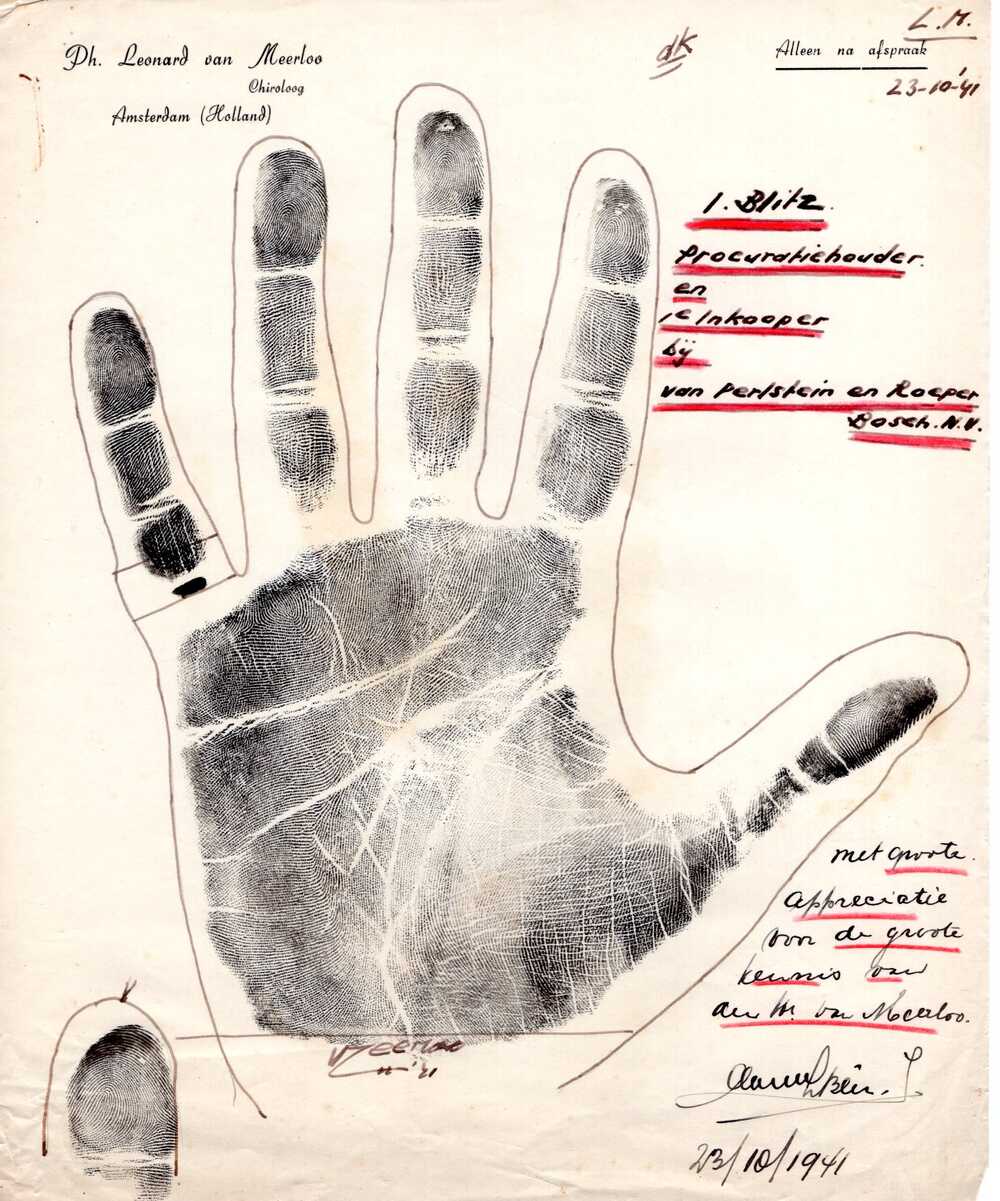 Ph. Leonard van Meerloo
Chiroloog
Amsterdam (Holland)
dK
L.M.
Alleen na afspraak
23-10-'41
I. Blitz.
Procuratiehouder.
en
1e Inkooper
bij
van Perlstein en Roeper
Bosch. N.V.
met groote
appreciatie
voor de groote
kennis van
den Hr. van Meerloo.
23/10/1941